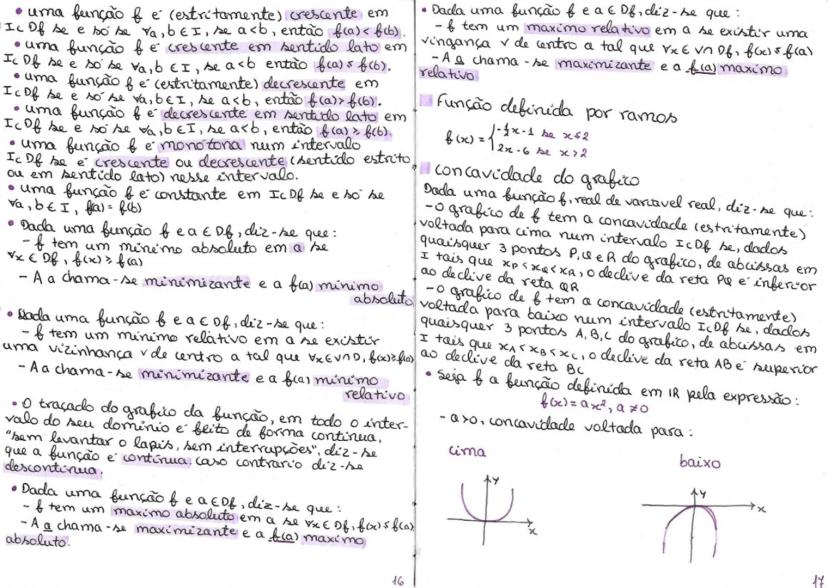 • uma função f é (estritamente) crescente em
I⊂Df se e só se ∀a,b ∈ I, se a<b, então f(a)<f(b).
• uma função f é crescente em sentido lato em
I⊂Df se e só se ∀a,b ∈ I, se a<b então f(a)≤f(b).
• uma função f é (estritamente) decrescente em
I⊂Df se e só se ∀a,b ∈ I, se a<b, então f(a)>f(b).
• uma função f é decrescente em sentido lato em
I⊂Df se e só se ∀a,b ∈ I, se a<b, então f(a)≥f(b).
• uma função f é monótona num intervalo
I⊂Df se é crescente ou decrescente (sentido estrito
ou em sentido lato) nesse intervalo.
• uma função f é constante em I⊂Df se e só se
∀a,b ∈ I, f(a)=f(b)
• Dada uma função f e a ∈ Df, diz-se que:
- f tem um mínimo absoluto em a se
∀x ∈ Df, f(x)≥f(a)
- A a chama-se minimizante e a f(a) mínimo
absoluto
• Dada uma função f e a ∈ Df, diz-se que:
- f tem um mínimo relativo em a se existir
uma vizinhança V de centro a tal que ∀x∈V∩D, f(x)≥f(a)
- A a chama-se minimizante e a f(a) mínimo
relativo
• O traçado do gráfico da função, em todo o inter-
valo do seu domínio é feito de forma contínua,
"sem levantar o lápis, sem interrupções", diz-se
que a função é contínua, caso contrário diz-se
descontínua.
• Dada uma função f e a ∈ Df, diz-se que:
- f tem um máximo absoluto em a se ∀x ∈ Df, f(x)≤f(a)
- A a chama-se maximizante e a f(a) máximo
absoluto.
16
• Dada uma função f e a ∈ Df, diz-se que:
- f tem um máximo relativo em a se existir uma
vingança V de centro a tal que ∀x ∈ V∩Df, f(x)≤f(a)
- A a chama-se maximizante e a f(a) máximo
relativo
Função definida por ramos
f(x) = { -½x-1 se x≤2
2x-6 se x>2
concavidade do gráfico
Dada uma função f, real de variável real, diz-se que:
- O gráfico de f tem a concavidade (estritamente)
voltada para cima num intervalo I⊂Df se, dados
quaisquer 3 pontos P,Q e R do gráfico, de abcissas em
I tais que xP<xQ<xR, o declive da reta PQ é inferior
ao declive da reta QR
- o gráfico de f tem a concavidade (estritamente)
voltada para baixo num intervalo I⊂Df se, dados
quaisquer 3 pontos A,B,C do gráfico, de abcissas em
I tais que xA<xB<xC, o declive da reta AB é superior
ao declive da reta BC
• Seja f a função definida em IR pela expressão:
f(x)=ax², a≠0
- a>0, concavidade voltada para:
cima
baixo
y
x
y
x
17